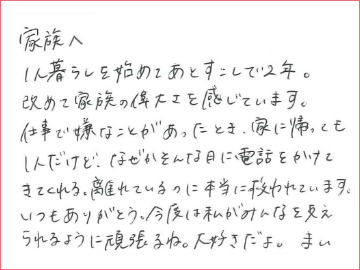 家族へ
1人暮らしを始めてあとすこしで2年。
改めて家族の偉大さを感じています。
仕事で嫌なことがあったとき、家に帰っても
1人だけど、なぜかそんな日に電話をかけて
きてくれる。離れているのに本当に救われています。
いつもありがとう。今度は私がみんなを支え
られるように頑張るね。大好きだよ。 まい